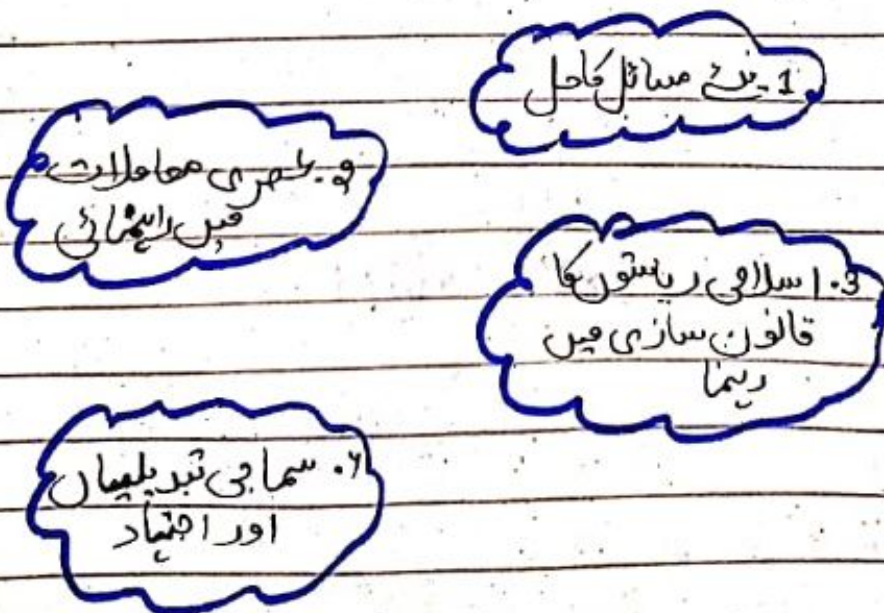 1- نئے مسائل کا حل
2. عصری معاملات
میں راہنمائی
3. اسلامی ریاستوں کا
قانون سازی میں
رہنما
4. سماجی تبدیلیاں
اور اجتہاد